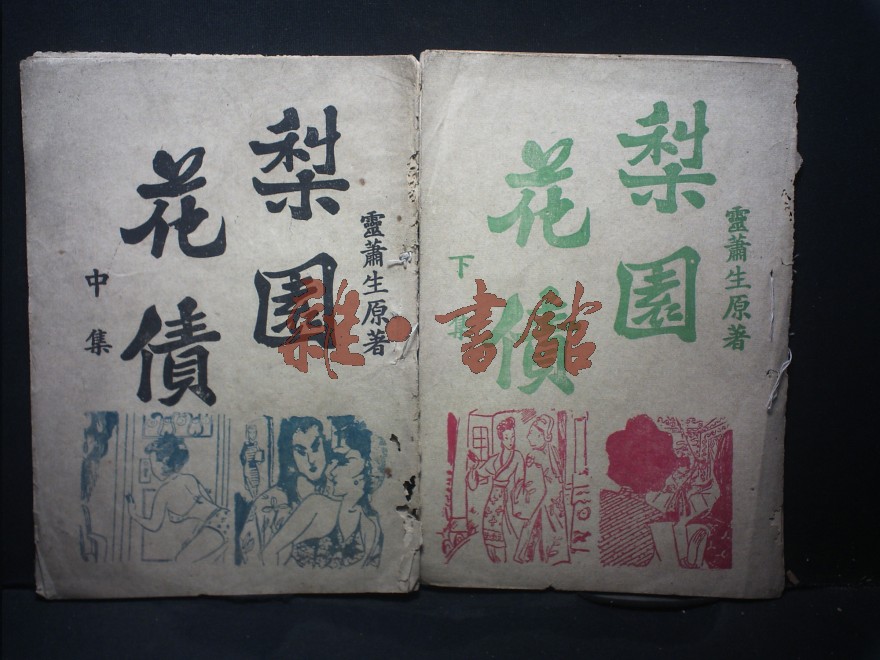 梨園
花債
靈蕭生原著
中集
梨園
花債
靈蕭生原著
下集
雜·書館